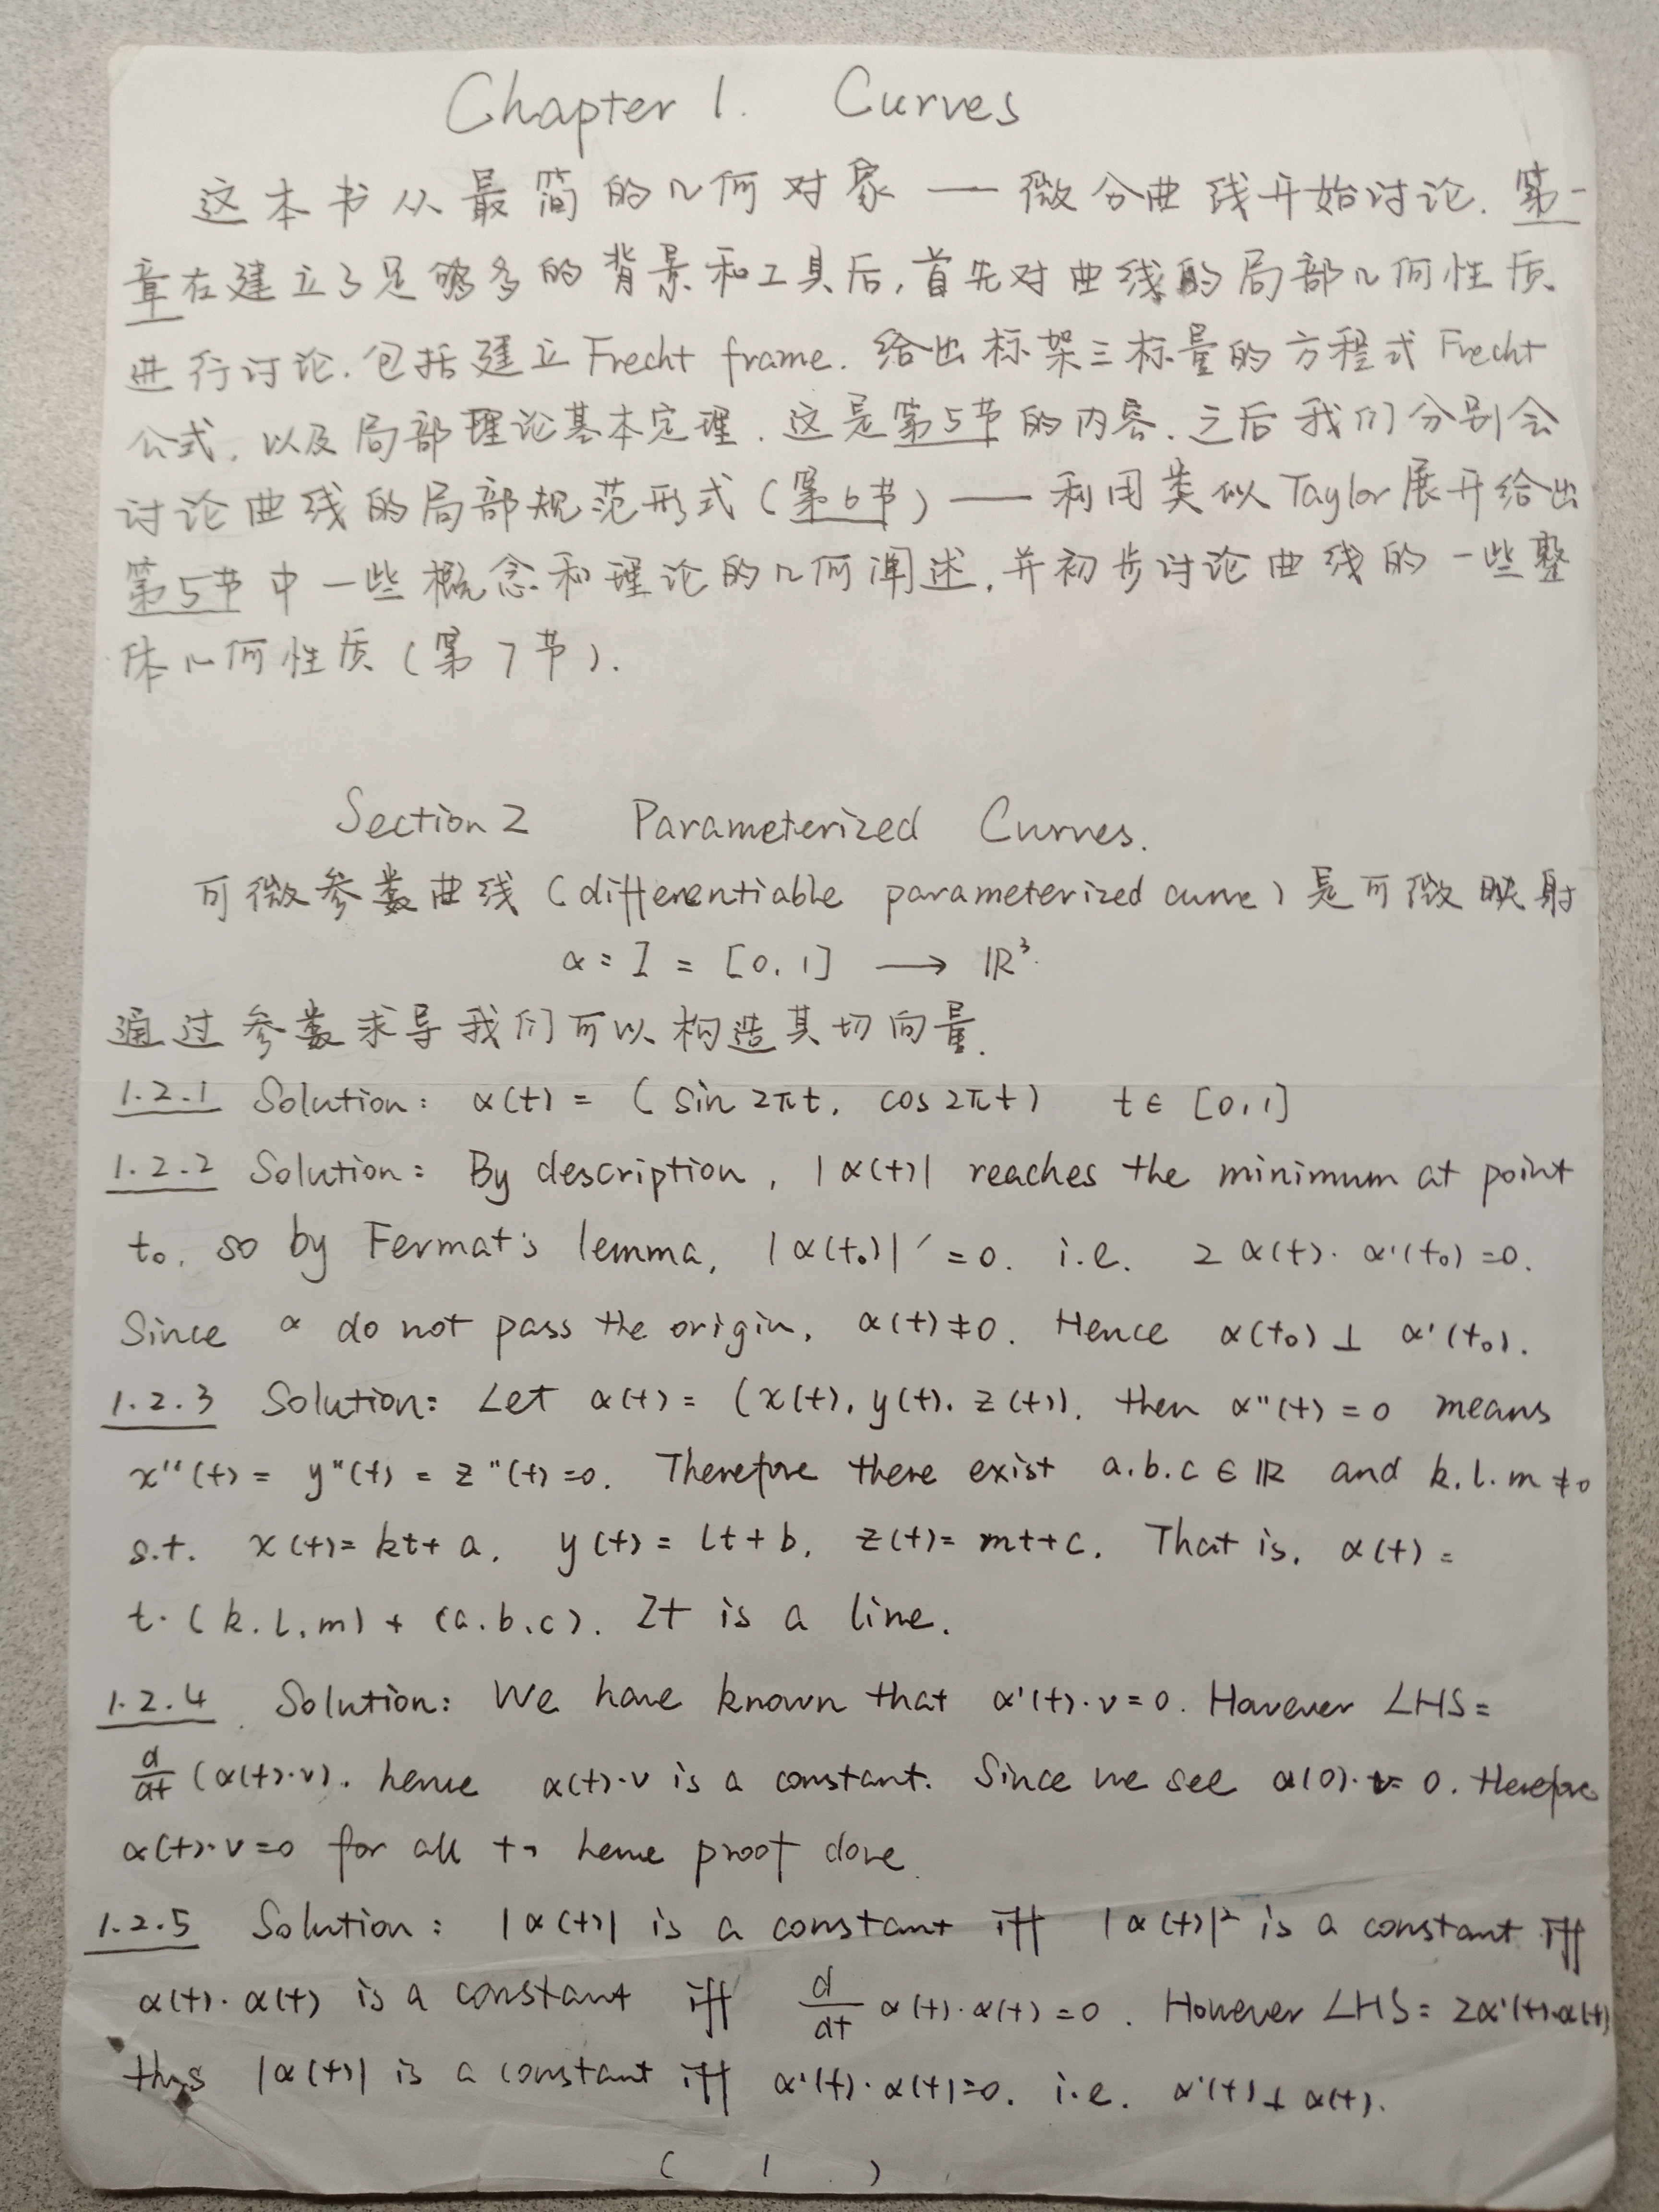 Chapter 1. Curves
这本书从最简的几何对象 — 微分曲线开始讨论. 第一
章在建立了足够多的背景和工具后, 首先对曲线的局部几何性质
进行讨论. 包括建立 Frecht frame. 给出标架三标量的方程式 Frecht
公式, 以及局部理论基本定理. 这是第5节的内容. 之后我们分别会
讨论曲线的局部规范形式 (第6节) — 利用类似 Taylor 展开给出
第5节中一些概念和理论的几何阐述, 并初步讨论曲线的一些整
体几何性质 (第7节).
Section 2 Parameterized Curves.
可微参数曲线 (differentiable parameterized curve) 是可微映射
α : I = [0, 1] ⟶ ℝ³.
通过参数求导我们可以构造其切向量.
1.2.1 Solution: α(t) = (sin 2πt, cos 2πt) t ∈ [0, 1]
1.2.2 Solution: By description, |α(t)| reaches the minimum at point
t₀, so by Fermat's lemma, |α(t₀)|′ = 0. i.e. 2 α(t)· α'(t₀) = 0.
Since α do not pass the origin, α(t) ≠ 0. Hence α(t₀) ⊥ α'(t₀).
1.2.3 Solution: Let α(t) = (x(t), y(t), z(t)), then α''(t) = 0 means
x''(t) = y''(t) = z''(t) = 0. Therefore there exist a, b, c ∈ ℝ and k, l, m ≠ 0
s.t. x(t) = kt + a, y(t) = lt + b, z(t) = mt + c. That is, α(t) =
t·(k, l, m) + (a, b, c). It is a line.
1.2.4 Solution: We have known that α'(t)·v = 0. However LHS =
d/dt (α(t)·v), hence α(t)·v is a constant. Since we see α(0)·v = 0. therefore
α(t)·v = 0 for all t, hence proof done.
1.2.5 Solution: |α(t)| is a constant iff |α(t)|² is a constant iff
α(t)·α(t) is a constant iff d/dt α(t)·α(t) = 0. However LHS = 2α'(t)·α(t)
thus |α(t)| is a constant iff α'(t)·α(t) = 0. i.e. α'(t) ⊥ α(t).
( 1 )